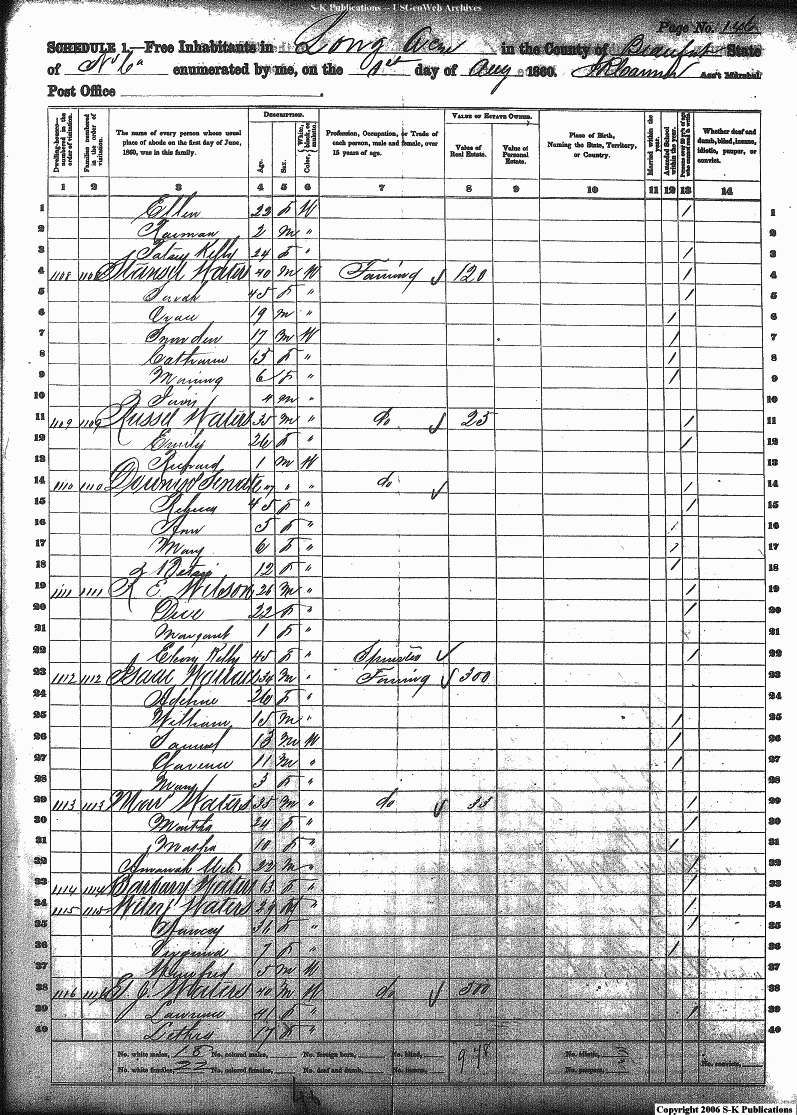 S-K Publications -- USGenWeb Archives
Page No. 146
SCHEDULE 1.—Free Inhabitants in Long Acre in the County of Beaufort State
of N Ca enumerated by me, on the 1st day of Aug 1860. Ass't Marshal
Post Office
Dwelling-houses—numbered in the order of visitation.
Families numbered in the order of visitation.
The name of every person whose usual place of abode on the first day of June, 1860, was in this family.
DESCRIPTION.
Age.
Sex.
Color, White, black, or mulatto.
Profession, Occupation, or Trade of each person, male and female, over 15 years of age.
VALUE OF ESTATE OWNED.
Value of Real Estate.
Value of Personal Estate.
Place of Birth, Naming the State, Territory, or Country.
Married within the year.
Attended School within the year.
Persons over 20 y'rs of age who cannot read & write.
Whether deaf and dumb, blind, insane, idiotic, pauper, or convict.
1 2 3 4 5 6 7 8 9 10 11 12 13 14
1 Ellen 22 F W / 1
2 2 m " 2
3 Patsey Kelly 24 F " / 3
4 1108 1108 Stansel Waters 40 M W Farming √ 120 / 4
5 Sarah 45 F " / 5
6 19 m " / 6
7 17 M W / 7
8 Catharine 13 F " / 8
9 Morning 6 F " / 9
10 4 m " 10
11 1109 1109 Russel Waters 35 M " do √ 25 / 11
12 Emily 26 F " / 12
13 Richard 1 M W 13
14 1110 1110 " " do √ / 14
15 Rebecca 45 F " / 15
16 Ann 5 F " / 16
17 Mary 6 F " / 17
18 12 F " / 18
19 1111 1111 R E Wilson 26 M " / 19
20 Dice 22 F " / 20
21 Margaret 1 F " 21
22 Kelly 45 F " √ / 22
23 1112 1112 Isaac 34 M " Farming √ 300 23
24 Adeline 26 F " 24
25 William 15 M " / 25
26 Samuel 13 M W / 26
27 Clarence 11 m " / 27
28 Mary 3 F " 28
29 1113 1113 Waters 35 M " do √ 35 / 29
30 Martha 24 F " / 30
31 10 F " / 31
32 22 m " / 32
33 1114 1114 Barbary Waters 63 F " / 33
34 1115 1115 Wiley Waters 29 M " / 34
35 Nancey 36 F " / 35
36 Virginia 7 F " / 36
37 5 m W 37
38 1116 1116 E J Waters 40 M W do √ 500 38
39 41 F " / 39
40 17 F " 40
No. white males, 18 No. colored males, No. foreign born, No. blind, 978 No. idiotic, No. convicts,
No. white females, 22 No. colored females, No. deaf and dumb, No. insane, No. paupers,
Copyright 2006 S-K Publications